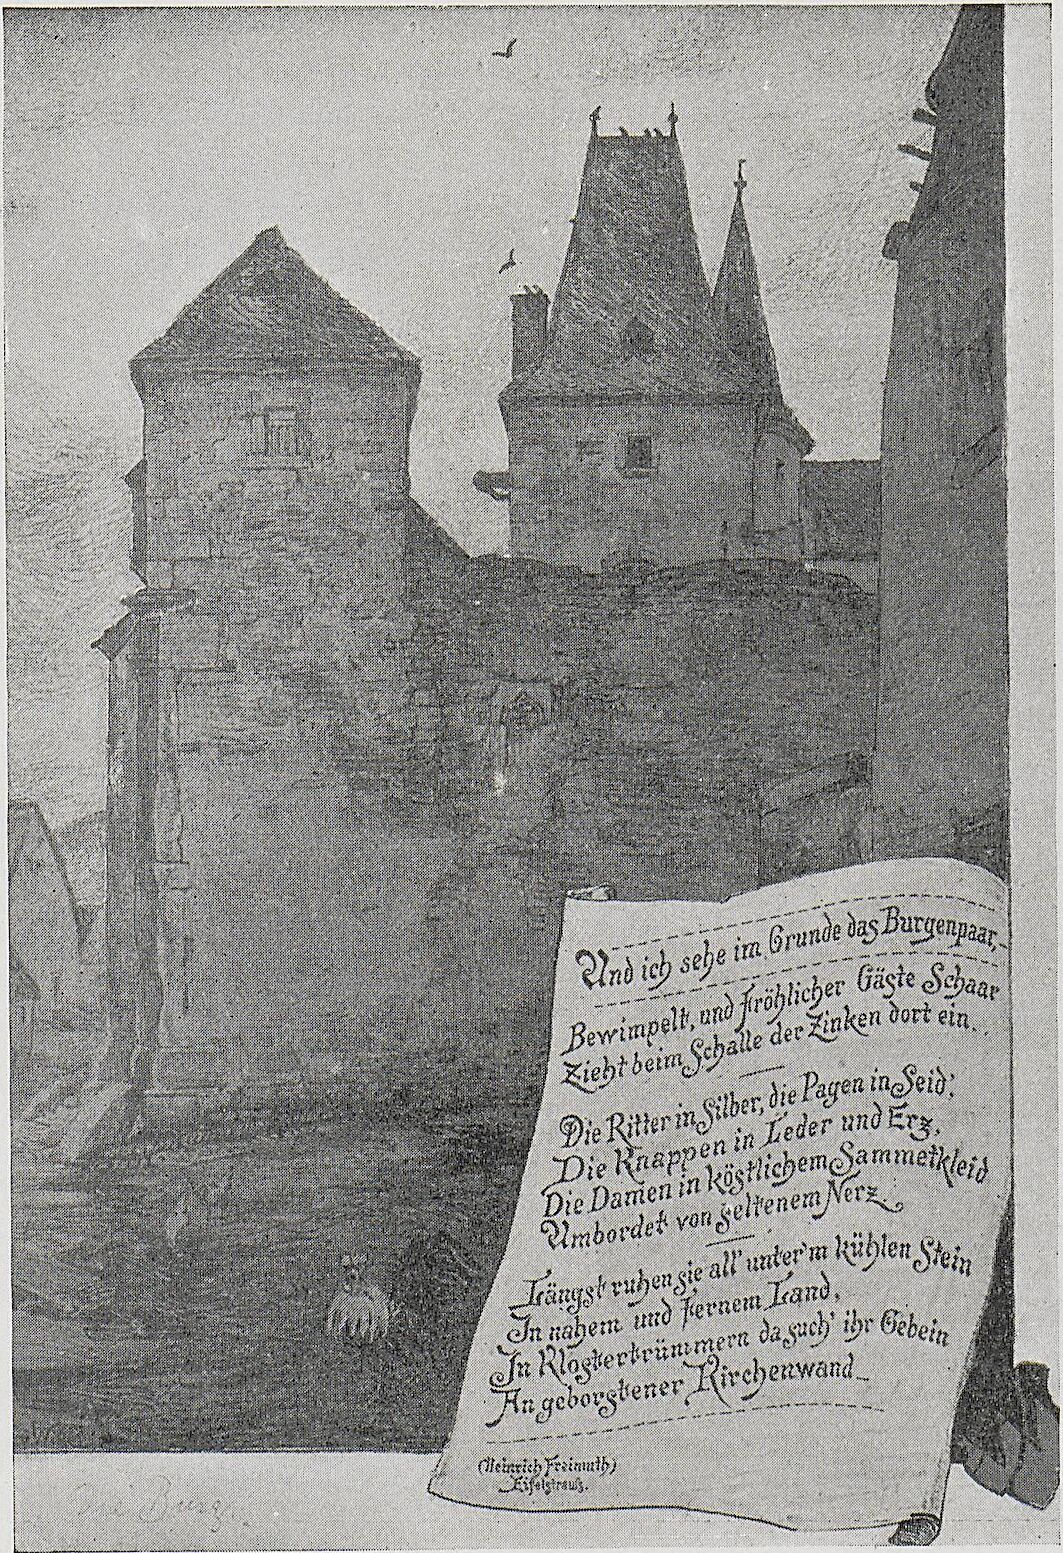 Und ich sehe im Grunde das Burgenpaar,–
Bewimpelt, und fröhlicher Gäste Schaar
Zieht beim Schalle der Zinken dort ein.
Die Ritter in Silber, die Pagen in Seid',
Die Knappen in Leder und Erz,
Die Damen in köstlichem Sammetkleid
Umbordet von seltenem Nerz.
Längst ruhen sie all' unter'm kühlen Stein
In nahem und fernem Land,
In Klostertrümmern da such' ihr Gebein
An geborstener Kirchenwand–
(Heinrich Freimuth)
Eifelstrauß.
Burg